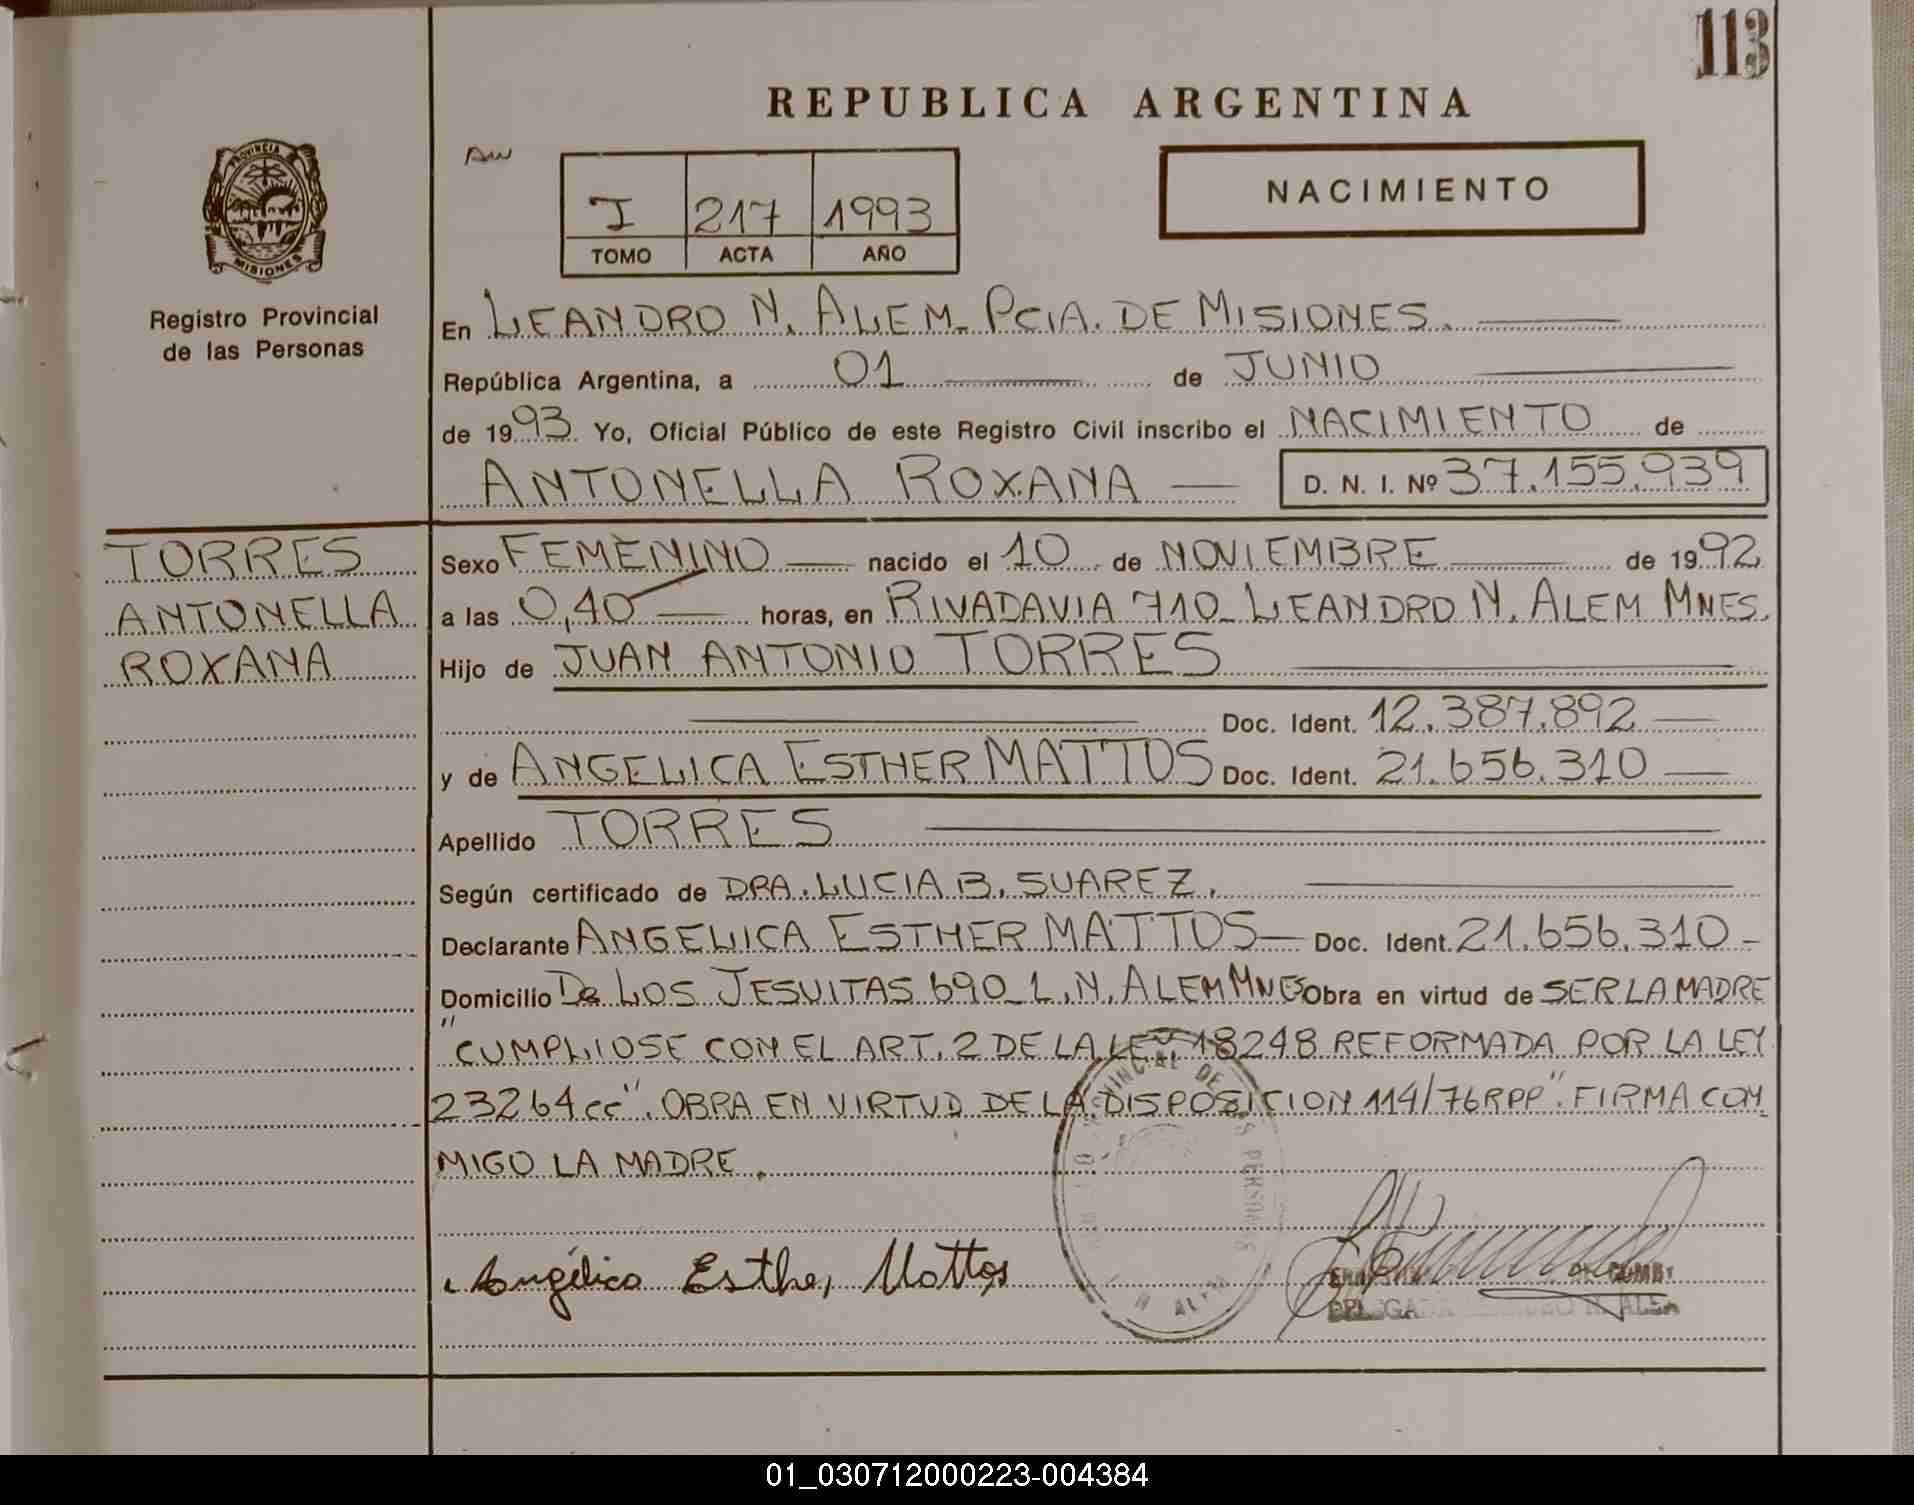 113
REPUBLICA ARGENTINA
PROVINCIA
MISIONES
Registro Provincial
de las Personas
I 217 1993
TOMO ACTA AÑO
NACIMIENTO
En LEANDRO N. ALEM_ PCIA. DE MISIONES.
República Argentina, a 01 de JUNIO
de 1993. Yo, Oficial Público de este Registro Civil inscribo el NACIMIENTO de
ANTONELLA ROXANA — D. N. I. Nº 37.155.939
TORRES
ANTONELLA
ROXANA
Sexo FEMENINO — nacido el 10 de NOVIEMBRE — de 1992
a las 0,40 — horas, en RIVADAVIA 710_ LEANDRO N. ALEM MNES.
Hijo de JUAN ANTONIO TORRES
Doc. Ident. 12.387.892 —
y de ANGELICA ESTHER MATTOS Doc. Ident. 21.656.310 —
Apellido TORRES
Según certificado de DRA. LUCIA B. SUAREZ.
Declarante ANGELICA ESTHER MATTOS — Doc. Ident. 21.656.310 -
Domicilio De LOS JESUITAS 690_ L.N. ALEM MNES Obra en virtud de SER LA MADRE
"CUMPLIOSE CON EL ART. 2 DE LA LEY 18248 REFORMADA POR LA LEY
23264 cc". OBRA EN VIRTUD DE LA DISPOSICION 114/76 RPP". FIRMA CON
MIGO LA MADRE.
Angélica Esther Mattos
01_030712000223-004384